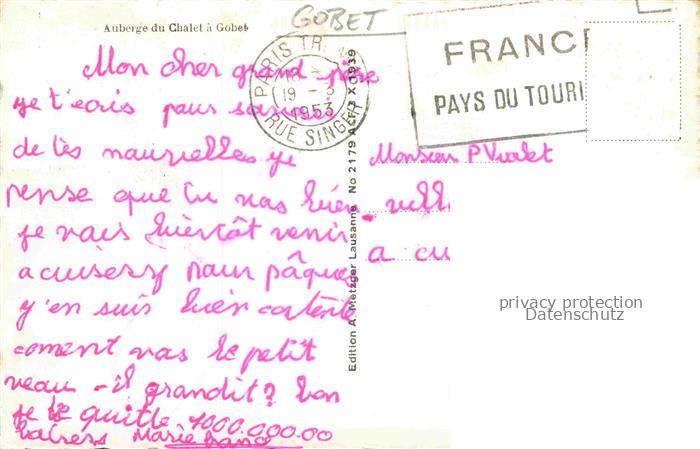 GOBET
Auberge du Chalet à Gobet
PARIS TRI
19 -3
1953
RUE SINGER
FRANC
PAYS DU TOURI
Mon cher grand père
je t'ecris pour savoir
de tes nouvelles je
pense que tu vas bien
je vais bientôt venir
a cuisery pour pâques
j'en suis bien contente
coment vas le petit
veau - il grandit? bon
je te quitte 1000.000.00
baisers Marie
Monsieur P Vialet
a cu
Edition A. Metzger Lausanne No 2179 ACF3 X 0939
privacy protection
Datenschutz